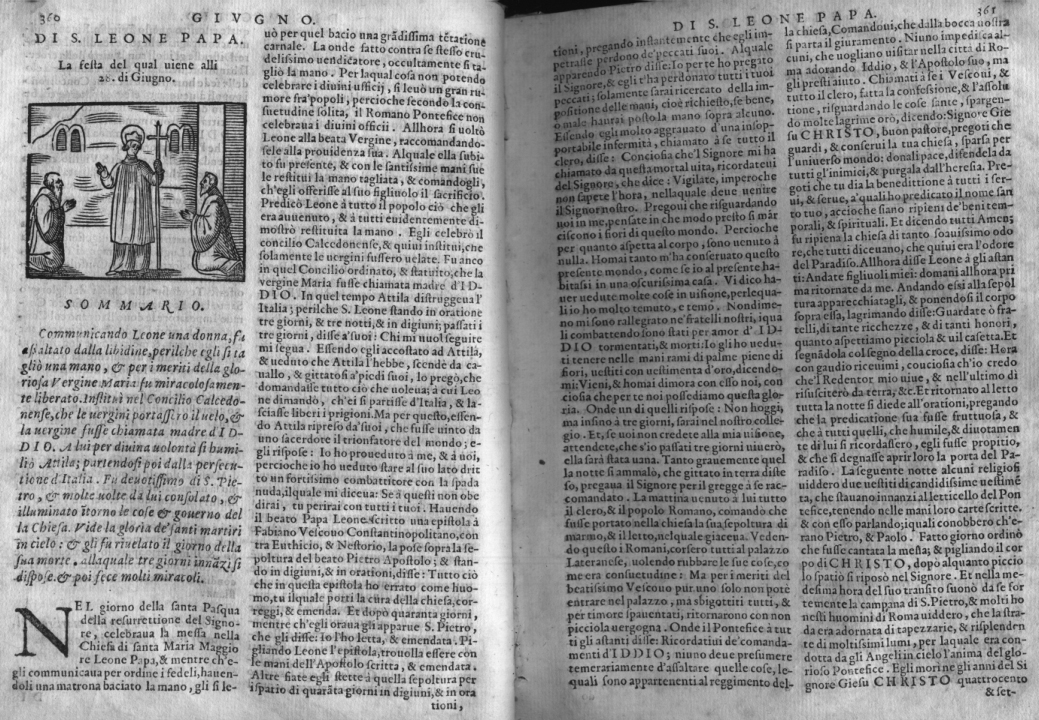 360
GIVGNO.
DI S. LEONE PAPA.
La festa del qual uiene alli
28. di Giugno.
SOMMARIO.
Communicando Leone una donna, fu
assaltato dalla libidine, perilche egli si ta
gliò una mano, & per i meriti della glo-
riosa Vergine Maria fu miracolosamen-
te liberato. Instituì nel Concilio Calcedo-
nense, che le uergini portassero il uelo, &
la uergine fusse chiamata madre d'ID-
DIO. A lui per diuina uolontà si humi-
liò Attila; partendosi poi dalla persecu-
tione d'Italia. Fu deuotissimo di S. Pie-
tro, & molte uolte da lui consolato, &
illuminato ītorno le cose & gouerno del
la Chiesa. Vide la gloria de'santi martiri
in cielo: & gli fu riuelato il giorno della
sua morte, allaquale tre giorni innāzi si
dispose. & poi fece molti miracoli.
NEL giorno della santa Pasqua
della resurrettione del Signo-
re, celebraua la messa nella
Chiesa di santa Maria Maggio
re Leone Papa, & mentre ch'e-
gli communicaua per ordine i fedeli, hauen-
doli una matrona baciato la mano, gli si le-
uò per quel bacio una grādissima tētatione
carnale. La onde fatto contra se stesso cru-
delissimo uendicatore, occultamente si ta-
gliò la mano. Per laqual cosa non potendo
celebrare i diuini ufficij, si leuò un gran ru-
more fra'popoli, percioche secondo la con-
suetudine solita, il Romano Pontefice non
celebraua i diuini officii. Allhora si uoltò
Leone alla beata Vergine, raccomandando-
sele alla prouidenza sua. Alquale ella subi-
to fu presente, & con le santissime mani sue
le restituì la mano tagliata, & comandogli,
ch'egli offerisse al suo figliuolo il sacrificio.
Predicò Leone à tutto il popolo ciò che gli
era auuenuto, & à tutti euidentemente di-
mostrò restituita la mano. Egli celebrò il
concilio Calcedonense, & quiui instituì, che
solamente le uergini fussero uelate. Fu anco
in quel Concilio ordinato, & statuito, che la
vergine Maria fusse chiamata madre d'ID-
DIO. In quel tempo Attila distruggeua l'
Italia; perilche S. Leone stando in oratione
tre giorni, & tre notti, & in digiuni; passati i
tre giorni, disse a'suoi: Chi mi nuol seguire
mi segua. Essendo egli accostato ad Attila,
& ueduto che Attila l'hebbe, scende da ca-
uallo, & gittatosi a'piedi suoi, lo pregò, che
domandasse tutto ciò che uoleua; à cui Leo
ne dimandò, ch'ei si partisse d'Italia, & la-
sciasse liberi i prigioni. Ma per questo, essen-
do Attila ripreso da'suoi, che fusse uinto da
uno sacerdote il trionfatore del mondo; e-
gli rispose: Io ho proueduto à me, & à uoi,
percioche io ho ueduto stare al suo lato drit
to un fortissimo combattitore con la spada
nuda, ilquale mi diceua: Se à questi non obe
dirai, tu perirai con tutti i tuoi. Hauendo
il beato Papa Leone scritto una epistola à
Fabiano Vescouo Constantinopolitano, con
tra Euthicio, & Nestorio, la pose sopra la se-
poltura del beato Pietro Apostolo; & stan-
do in digiuni, & in orationi, disse: Tutto ciò
che in questa epistola ho errato come huo-
mo, tu ilquale porti la cura della chiesa, cor-
reggi, & emenda. Et dopo quaranta giorni,
mentre ch'egli oraua gli apparue S. Pietro,
che gli disse: io l'ho letta, & emendata. Pi-
gliando Leone l'epistola, trouolla essere con
le mani dell'Apostolo scritta, & emendata.
Altre fiate egli stette à quella sepoltura per
ispatio di quarāta giorni in digiuni, & in ora
tioni,
DI S. LEONE PAPA.
361
tioni, pregando instantemente che egli im-
petrasse perdono de'peccati suoi. Alquale
apparendo Pietro disse: Io per te ho pregato
il Signore, & egli t'ha perdonato tutti i tuoi
peccati; solamente sarai ricercato della im-
positione delle mani, cioè richiesto, se bene,
o male haurai postola mano sopra alcuno.
Essendo egli molto aggrauato d'una insop-
portabile infermità, chiamato à se tutto il
clero, disse: Conciosia che'l Signore mi ha
chiamato da questa mortal uita, ricordateui
del Signore, che dice: Vigilate, imperoche
non sapete l'hora, nellaquale deue uenire
il Signor nostro. Pregoui che risguardando
uoi in me, pensate in che modo presto si mar
ciscono i fiori di questo mondo. Percioche
per quanto aspetta al corpo, sono uenuto à
nulla. Homai tanto m'ha conseruato questo
presente mondo, come se io al presente ha-
bitassi in una oscurissima casa. Vi dico ha-
uer uedute molte cose in uisione, per lequa-
li io ho molto temuto, e temo. Nondime-
no mi sono rallegrato ne'fratelli nostri, iqua
li combattendo sono stati per amor d'ID-
DIO tormentati, & morti: Io gli ho uedu-
ti tenere nelle mani rami di palme piene di
fiori, uestiti con uestimenta d'oro, dicendo-
mi: Vieni, & homai dimora con esso noi, con
ciosia che per te noi possediamo questa glo-
ria. Onde un di quelli rispose: Non hoggi,
ma insino à tre giorni, sarai nel nostro colle-
gio. Et, se uoi non credete alla mia uisione,
attendete, che s'io passati tre giorni niuerò,
ella sarà stata uana. Tanto grauemente quel
la notte si ammalò, che gittato in terra diste
so, pregaua il Signore per il gregge à se rac-
comandato. La mattina uenuto à lui tutto
il clero, & il popolo Romano, comandò che
fusse portato nella chiesa la sua sepoltura di
marmo, & il letto, nelquale giaceua. Veden-
do questo i Romani, corsero tutti al palazzo
Lateranese, uolendo rubbare le sue cose, co
me era consuetudine: Ma per i meriti del
beatissimo Vescouo pur uno solo non potè
entrare nel palazzo, ma sbigottiti tutti, &
per timore spauentati, ritornarono con non
picciola uergogna. Onde il Pontefice à tut
ti gli astanti disse: Ricordatiui de'comanda-
menti d'IDDIO; niuno deue presumere
temerariamente d'assaltare quelle cose, le-
quali sono appartenenti al reggimento del-
la chiesa, Comandoui, che dalla bocca uostra
si parta il giuramento. Niuno impedisca al-
cuni, che uogliono uisitar nella città di Ro-
ma adorando Iddio, & l'Apostolo suo, ma
gli presti aiuto. Chiamati à se i Vescoui, &
tutto il clero, fatta la confessione, & l'assolu
tione, risguardando le cose sante, spargen-
do molte lagrime orò, dicendo: Signore Gie
su CHRISTO, buon pastore, pregoti che
guardi, & conserui la tua chiesa, sparsa per
l'uniuerso mondo: donali pace, difendela da
tutti gl'inimici, & purgala dall'heresia. Pre-
goti che tu dia la beneditione à tutti i ser-
ui, & serue, a'quali ho predicato il nome san
to tuo, accioche siano ripieni de'beni tem-
porali, & spirituali. Et dicendo tutti Amen;
fu ripiena la chiesa di tanto soauissimo odo
re, che tutti diceuano, che quiui era l'odore
del Paradiso. Allhora disse Leone à gli astan
ti: Andate figliuoli miei: domani allhora pri
ma ritornate da me. Andando essi alla sepol
tura apparecchiatagli, & ponendosi il corpo
sopra essa, lagrimando disse: Guardate ò fra-
telli, di tante ricchezze, & di tanti honori,
quanto aspettiamo picciola & uil casetta. Et
segnādola col segno della croce, disse: Hora
con gaudio riceuimi, conciosia ch'io credo
che'l Redentor mio uiue, & nell'ultimo di
risusciterò da terra, &c. Et ritornato al letto
tutta la notte si diede all'orationi, pregando
che la predicatione sua fusse fruttuosa, &
che à tutti quelli, che humile, & diuotamen
te di lui si ricordassero, egli fusse propitio,
& che si degnasse aprir loro la porta del Pa-
radiso. La seguente notte alcuni religiosi
uiddero due uestiti di candidissime uestimē
ta, che stauano innanzi al letticello del Pon
tefice, tenendo nelle mani loro carte scritte.
& con esso parlando; iquali conobbero ch'e-
rano Pietro, & Paolo. Fatto giorno ordinò
che fusse cantata la messa; & pigliando il cor
po di CHRISTO, dopo alquanto piccio
lo spatio si riposò nel Signore. Et nella me-
desima hora del suo transito sonò da se for
temente la campana di S. Pietro, & molti ho
nesti huomini di Roma uiddero, che la stra-
da era adornata di tapezzarie, & risplenden
te di moltissimi lumi, per laquale era con-
dotta da gli Angeli in cielo l'anima del glo-
rioso Pontefice. Egli morì ne gli anni del Si
gnore Giesu CHRISTO quattrocento
& set-